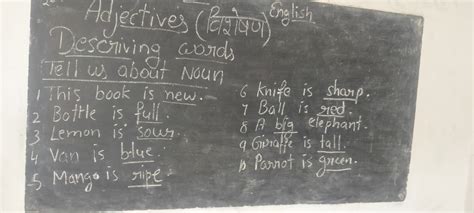 Adjectives (विशेषण) English
Descriving words
Tell us about Noun
1 This book is new.
2 Bottle is full.
3 Lemon is sour.
4 Van is blue.
5 Mango is ripe
6 Knife is sharp.
7 Ball is red.
8 A big elephant.
9 Giraffe is tall.
10 Parrot is green.